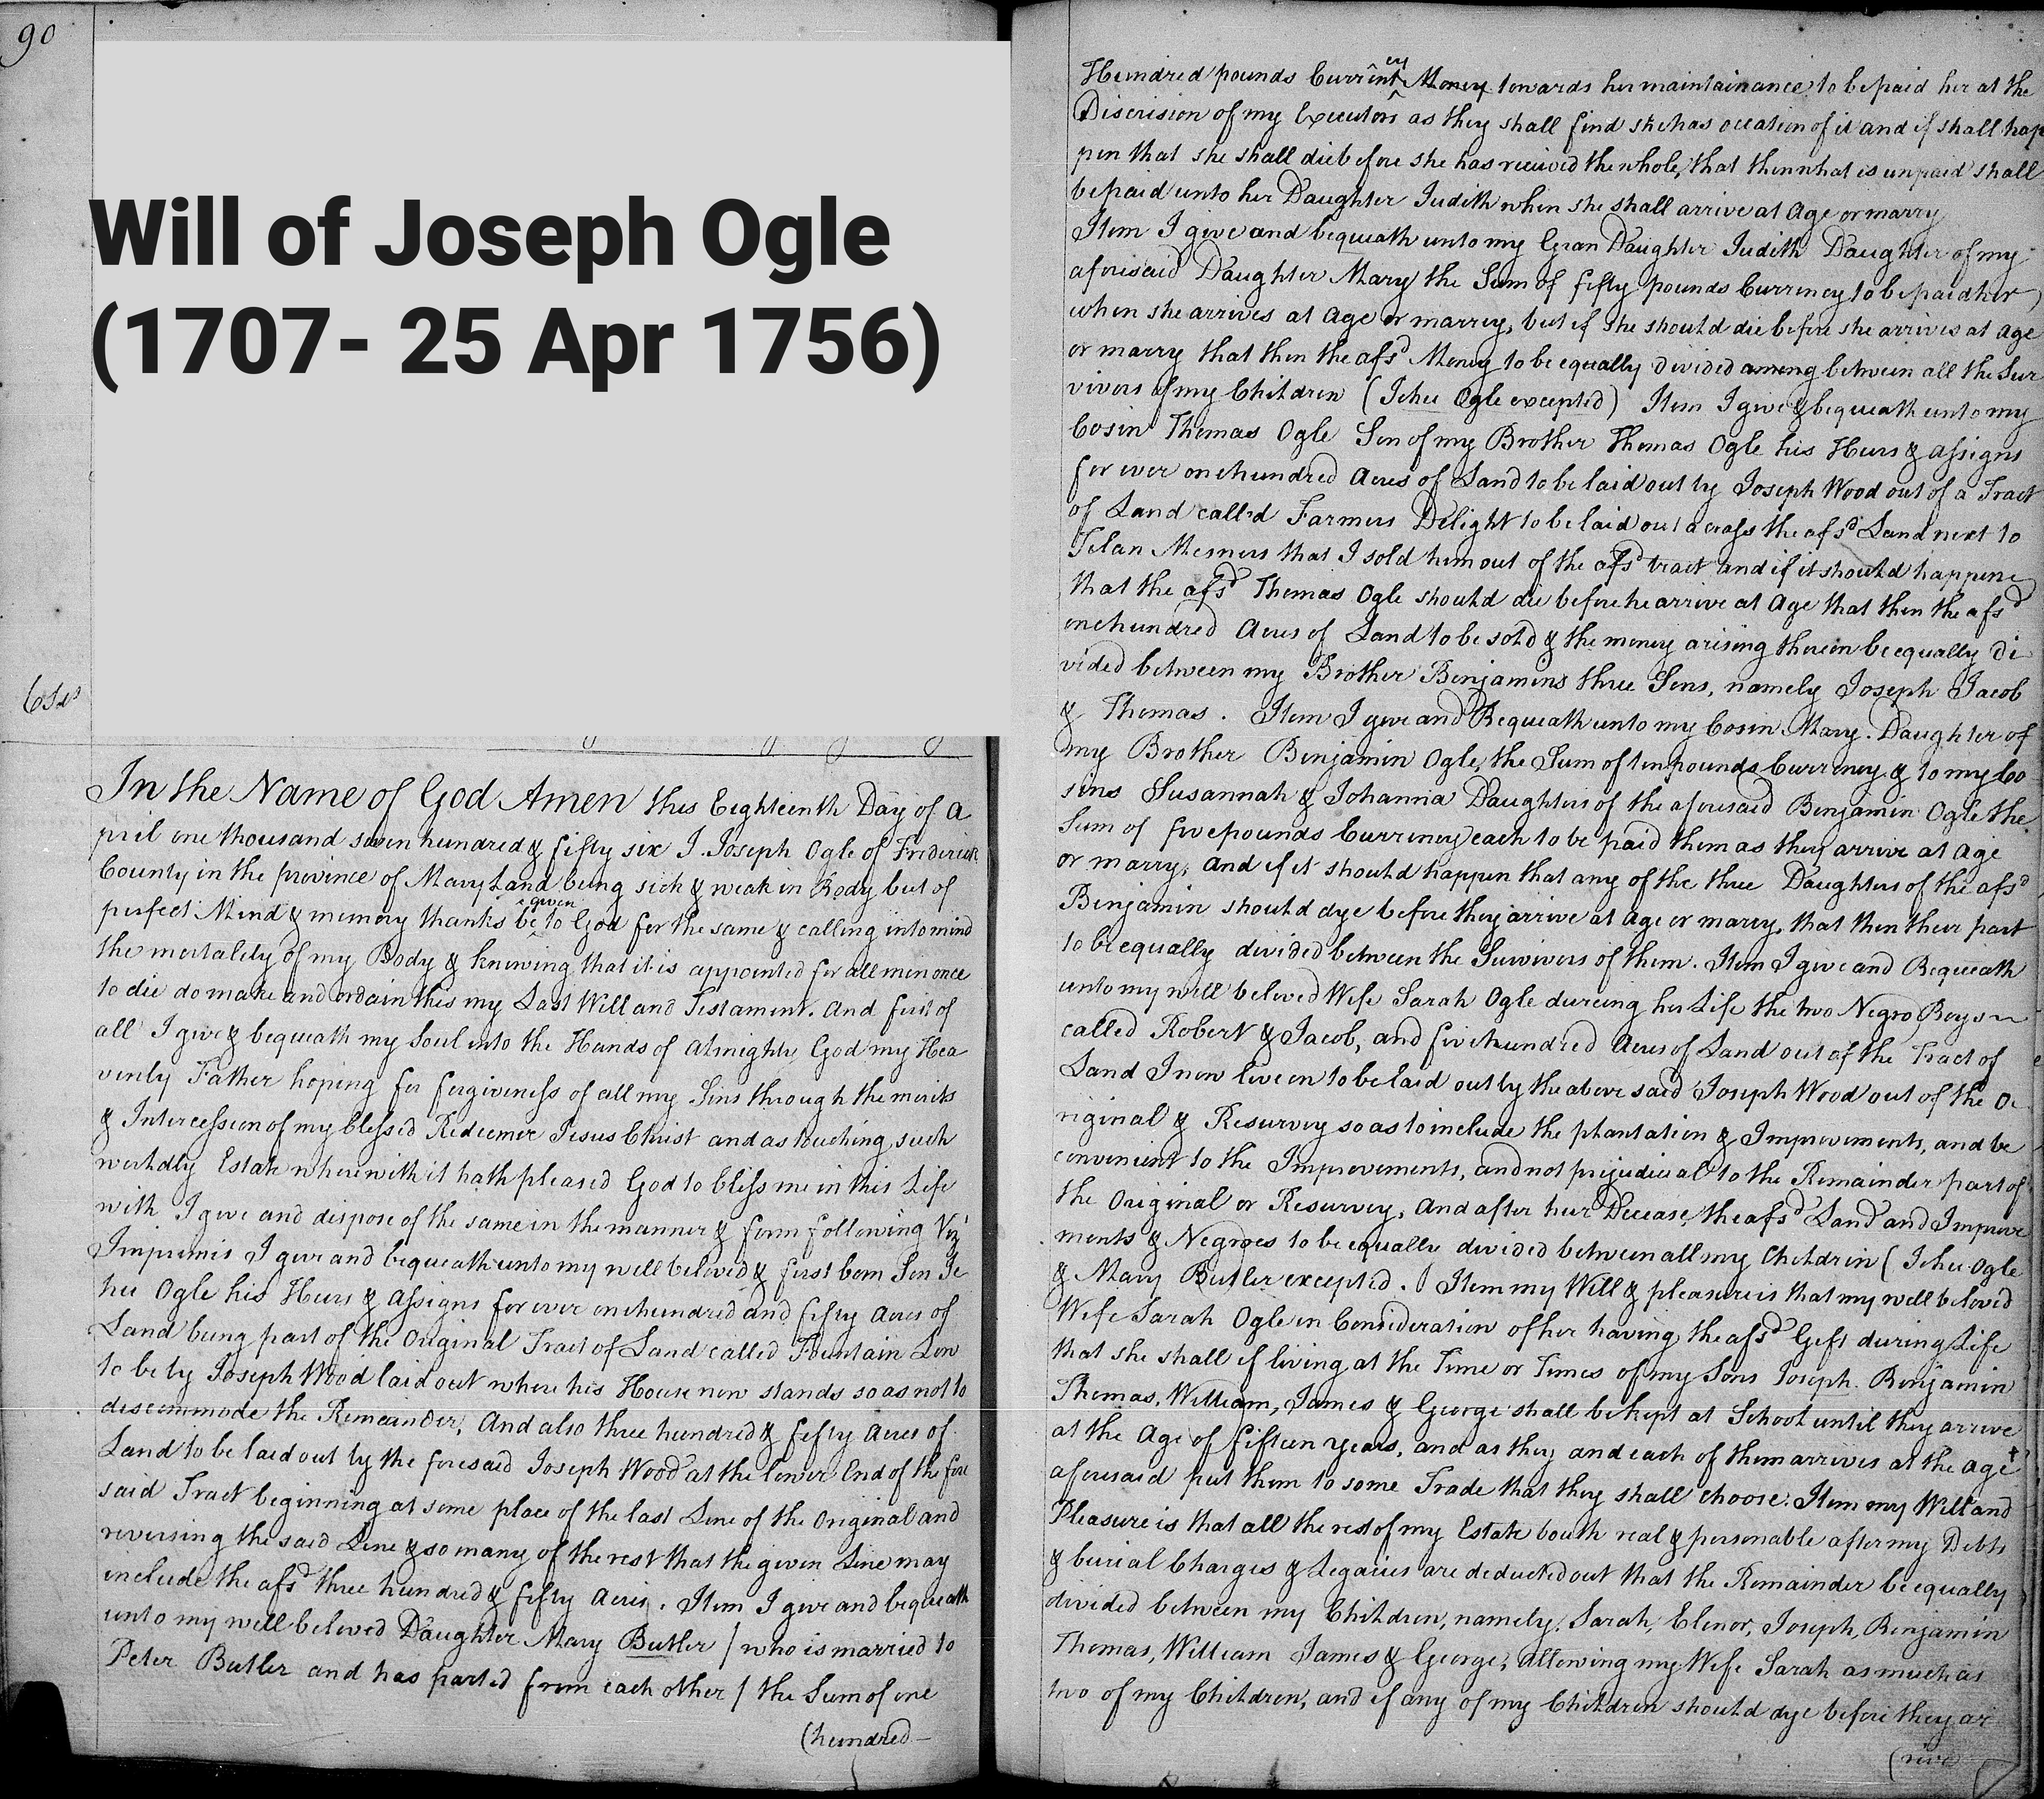 90
Will of Joseph Ogle
(1707- 25 Apr 1756)
In the Name of God Amen this Eighteenth Day of A
pril one thousand seven hundred & fifty six I Joseph Ogle of Frederick
County in the province of Mary Land being sick & weak in Body but of
perfect Mind & memory thanks be given to God for the same & calling into mind
the mortality of my Body & knowing that it is appointed for all men once
to die do make and ordain this my Last Will and Testament. And first of
all I give & bequeath my Soul into the Hands of Almighty God my Hea
venly Father hoping for forgiveness of all my Sins through the merits
& Intercession of my blessed Redeemer Jesus Christ and as touching such
worldly Estate wherewith it hath pleased God to bless me in this Life
with I give and dispose of the same in the manner & form following Viz
Imprimis I give and bequeath unto my well beloved & first born Son Je
hu Ogle his Heirs & Assigns for ever one hundred and fifty Acres of
Land being part of the Original Tract of Land called Fountain Low
to be by Joseph Wood laid out where his House now stands so as not to
discommode the Remeander, And also three hundred & fifty Acres of
Land to be laid out by the foresaid Joseph Wood at the lower End of the fore
said Tract beginning at some place of the last Line of the Original and
reversing the said Line & so many of the rest that the given Line may
include the afsd three hundred & fifty Acres. Item I give and bequeath
unto my well beloved Daughter Mary Butler / who is married to
Peter Butler and has parted from each other / the Sum of one
(hundred
Hundred pounds Currency Money towards her maintainance to be paid her at the
Discrision of my Executors as they shall find she has occation of it and if shall hap
pen that she shall die before she has received the whole, that then what is unpaid shall
be paid unto her Daughter Judith when she shall arrive at Age or marry
Item I give and bequeath unto my Gran Daughter Judith Daughter of my
aforesaid Daughter Mary the Sum of fifty pounds Currency to be paid her
when she arrives at Age or marry, but if she should die before she arrives at Age
or marry that then the afsd Money to be equally divided among between all the Sur
vivors of my Children (Jehu Ogle excepted) Item I give & bequeath unto my
Cosin Thomas Ogle Son of my Brother Thomas Ogle his Heirs & assigns
for ever one hundred Acres of Land to be laid out by Joseph Wood out of a Tract
of Land call'd Farmers Delight to be laid out across the afsd Land next to
that I sold him out of the afsd tract and if it should happen
that the afsd Thomas Ogle should die before he arrive at Age that then the afsd
one hundred Acres of Land to be sold & the money arising therein be equally di
vided between my Brother Benjamins three Sons, namely Joseph Jacob
& Thomas. Item I give and Bequeath unto my Cosin Mary Daughter of
my Brother Benjamin Ogle, the Sum of ten pounds Currency & to my Co
sins Susannah & Johanna Daughters of the aforesaid Benjamin Ogle the
Sum of five pounds Currency each to be paid them as they arrive at Age
or marry, and if it should happen that any of the three Daughters of the afsd
Benjamin should dye before they arrive at Age or marry, that then their part
to be equally divided between the Survivors of them. Item I give and Bequeath
unto my well beloved Wife Sarah Ogle dureing her Life the two Negro Boys
called Robert & Jacob, and five hundred Acres of Land out of the Tract of
Land I now live on to be laid out by the above said Joseph Wood out of the O
riginal & Resurvey so as to include the plantation & Improvements, and be
convenient to the Improvements, and not prejudicial to the Remainder part of
the Original or Resurvey, And after her Decease, the afsd Land and Improve
ments & Negroes to be equally divided between all my Children (Jehu Ogle
& Mary Butler excepted. Item my Will & pleasure is that my well beloved
Wife Sarah Ogle in Consideration of her having the afsd Gift during Life
that she shall if living at the Time or Times of my Sons Joseph Benjamin
Thomas, William, James & George shall be kept at School until they arrive
at the Age of fifteen years, and as they and each of them arrives at the age
aforesaid put them to some Trade that they shall choose. Item my Will and
Pleasure is that all the rest of my Estate bouth real & personable after my Debts
& burial Charges & Legacies are deducted out that the Remainder be equally
divided between my Children, namely, Sarah, Elenor, Joseph, Benjamin
Thomas, William James & George, allowing my Wife Sarah as much as
two of my Children, and if any of my Children should dye before they ar
(rive